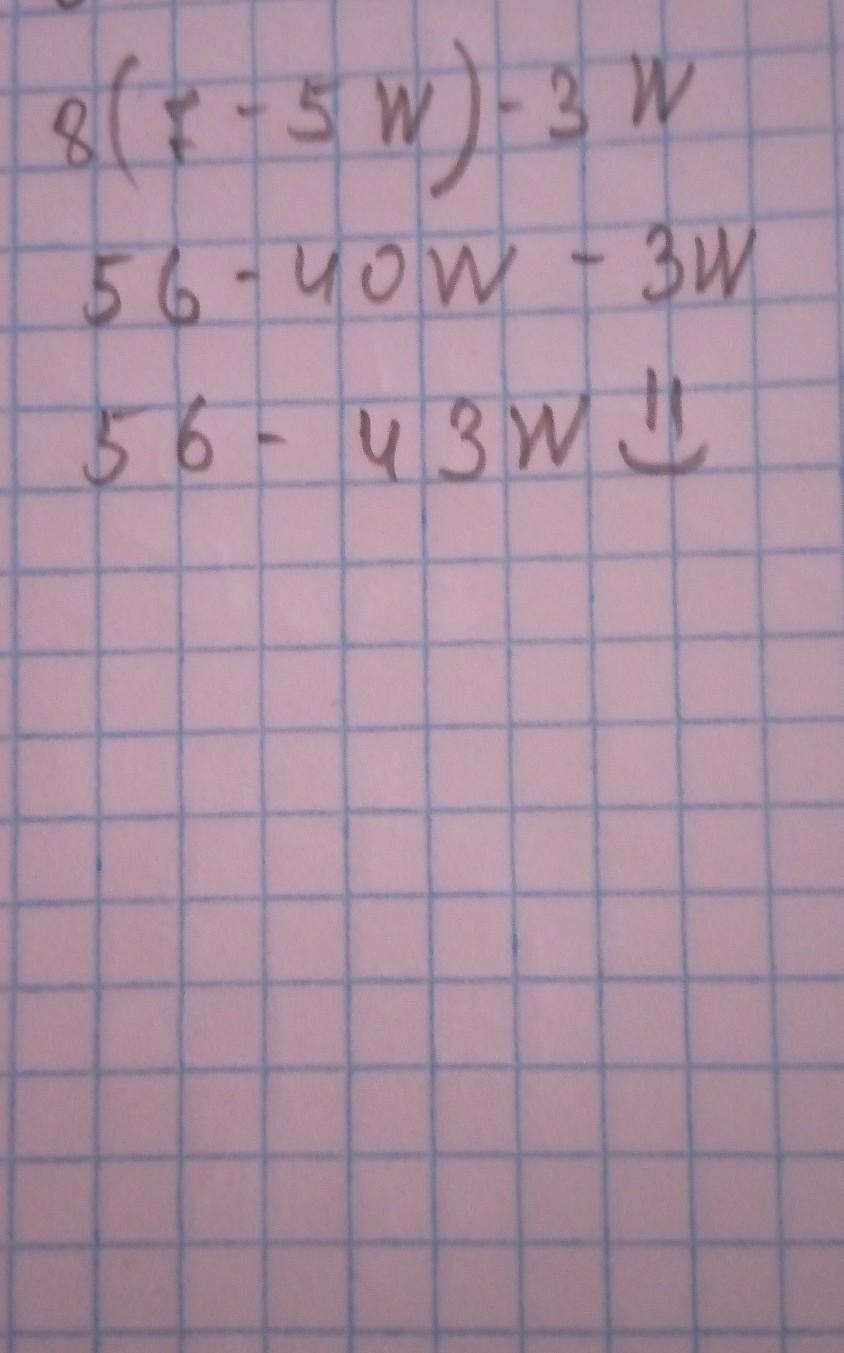 8(7-5W)-3W
56-40W-3W
56-43W